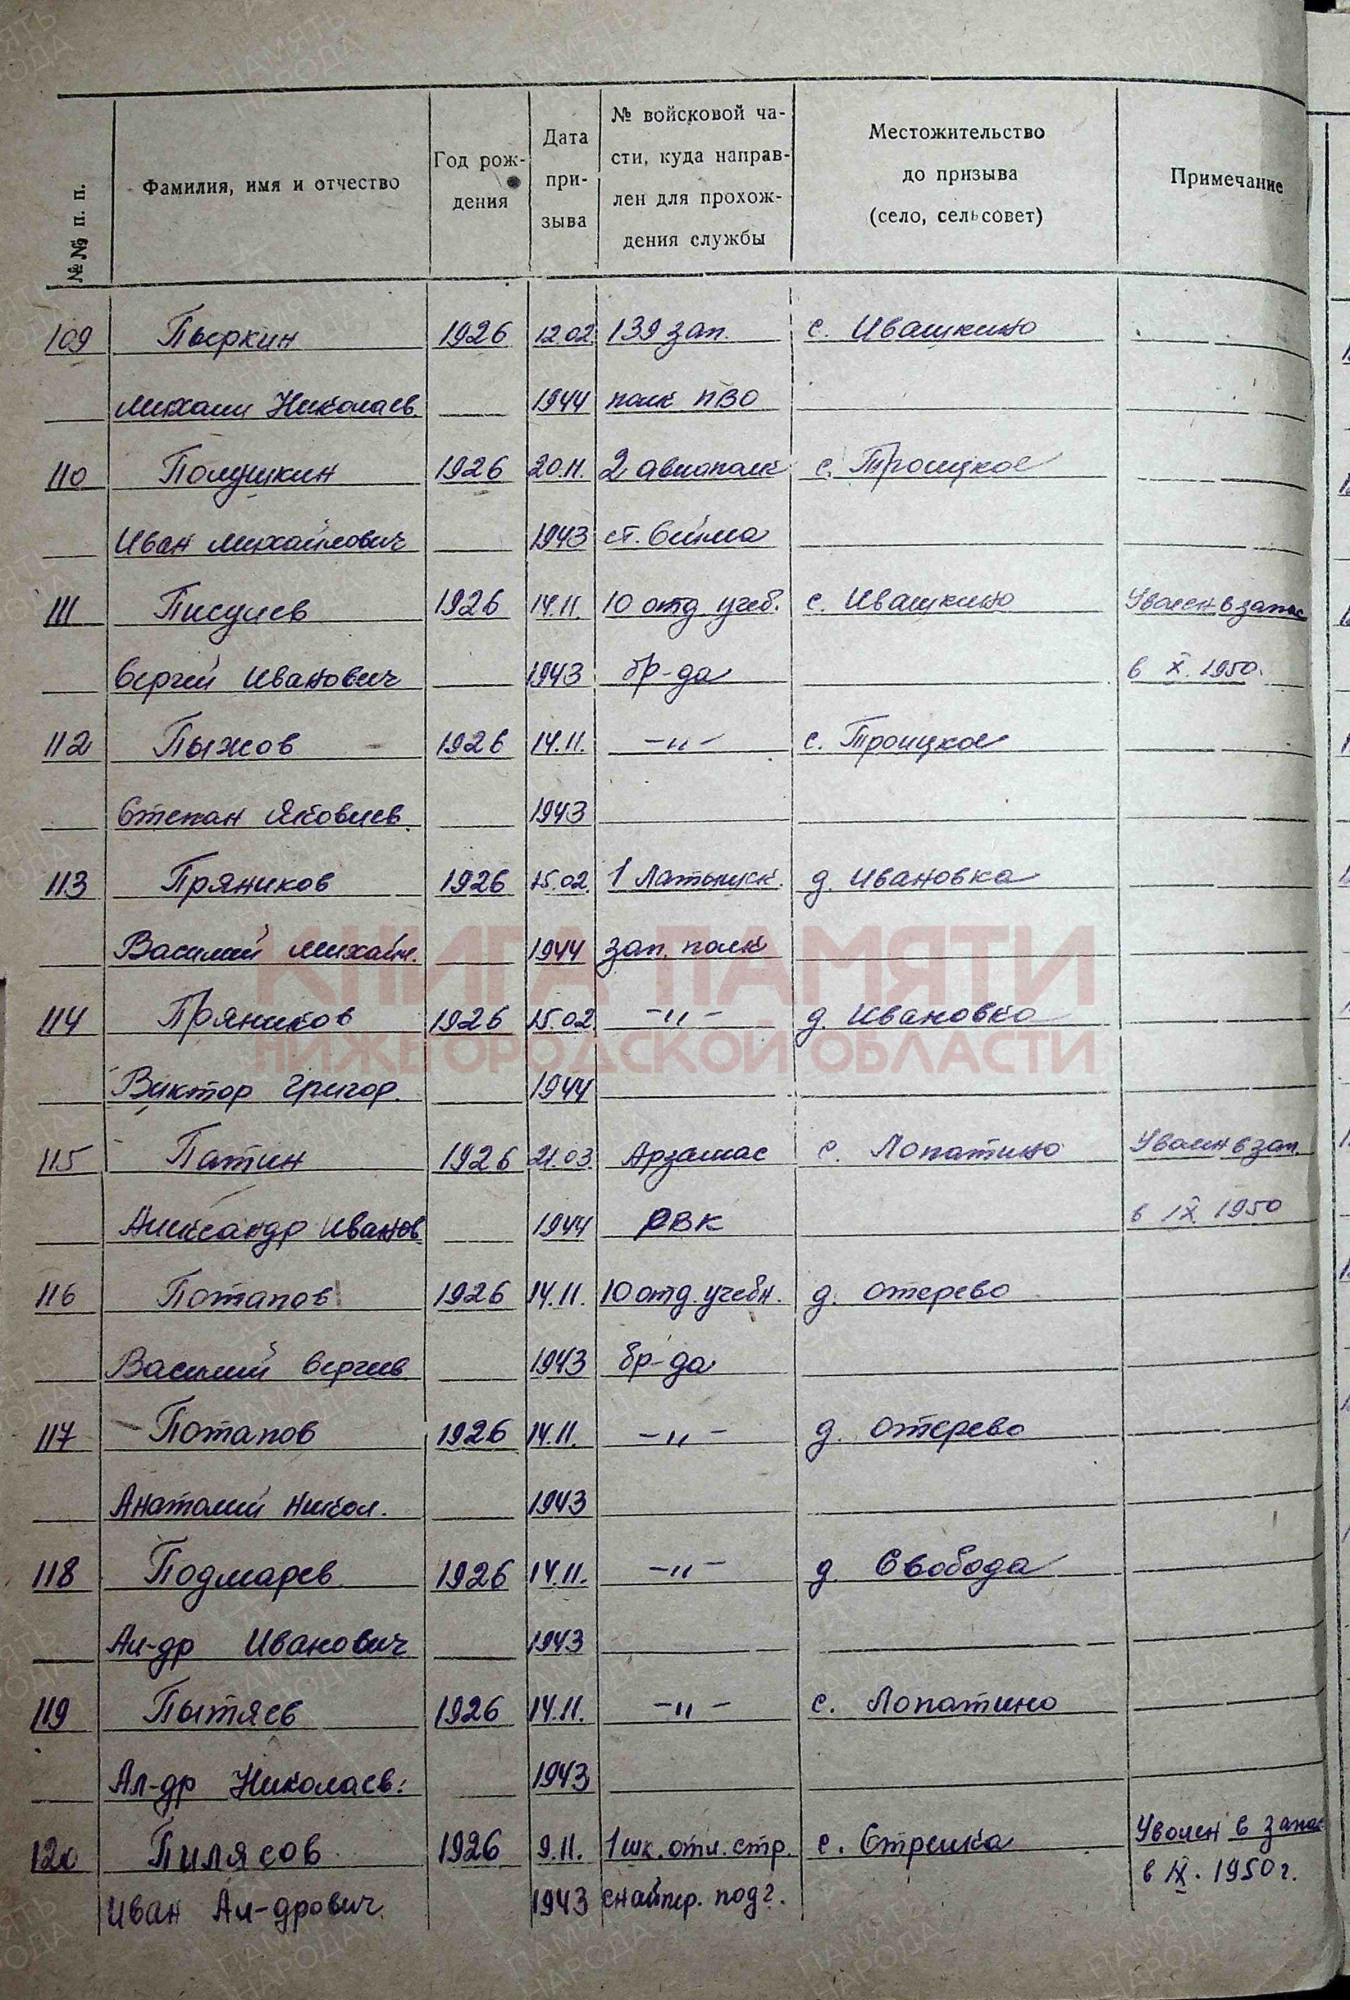 №№ п. п. Фамилия, имя и отчество Год рождения Дата призыва № войсковой части, куда направлен для прохождения службы Местожительство до призыва (село, сельсовет) Примечание
109 Пыркин 1926 12.02 139 зап. с. Ивашкино
Михаил Николаев 1944 полк ПВО
110 Полушкин 1926 20.11. 2 авиополк с. Троицкое
Иван Михайлович 1943 ст. Сейма
111 Писулев 1926 14.11. 10 отд. учеб. с. Ивашкино Уволен в запас
Сергей Иванович 1943 бр-да в X. 1950.
112 Пыжов 1926 14.11. -"- с. Троицкое
Степан Яковлев. 1943
113 Пряников 1926 15.02. 1 д. Ивановка
Василий Михайл. 1944 зап. полк
114 Пряников 1926 15.02. -"- д. Ивановка
Виктор Григор. 1944
115 Патин 1926 21.03. Арзамас с. Лопатино Уволен в зап.
Александр Иванов 1944 РВК в IX 1950
116 Потапов 1926 14.11. 10 отд. учебн. д. Отерево
Василий Сергеев 1943 бр-да
117 Потапов 1926 14.11. -"- д. Отерево
Анатолий Никол. 1943
118 Подмарев 1926 14.11. -"- д. Свобода
Ал-др Иванович 1943
119 Пытяев 1926 14.11. -"- с. Лопатино
Ал-др Николаев. 1943
120 Пилясов 1926 9.11. 1 шк. отл. стр. с. Стрелка Уволен в запас
Иван Ал-дрович. 1943 снайпер. подг. в IX. 1950 г.
КНИГА ПАМЯТИ
НИЖЕГОРОДСКОЙ ОБЛАСТИ
ПАМЯТЬ
НАРОДА